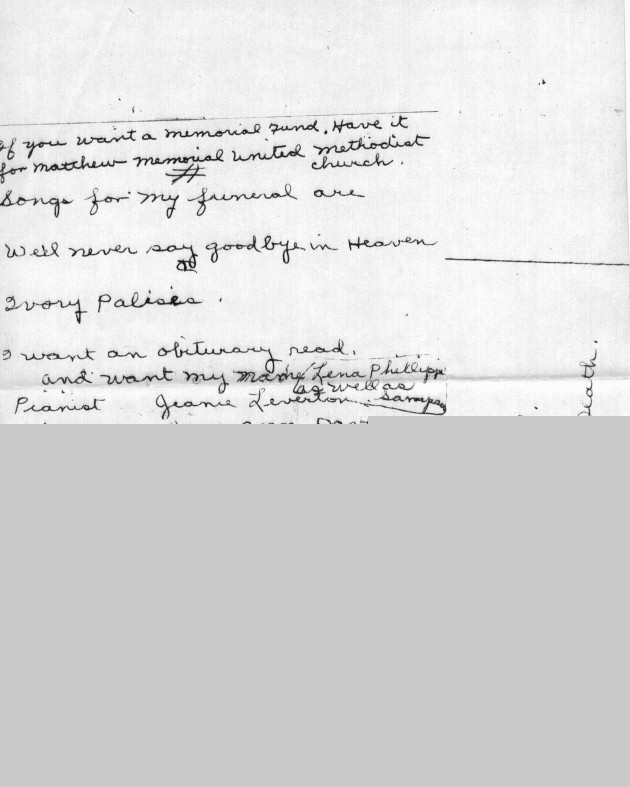 If you want a memorial Fund. Have it
for Matthew memorial United Methodist
church.
Songs for my funeral are
We'll never say goodbye in Heaven
Ivory Palises.
I want an obiturary read.
and want my Lena Phillippi
as well as
Pianist Jeanie Leverton
Death.